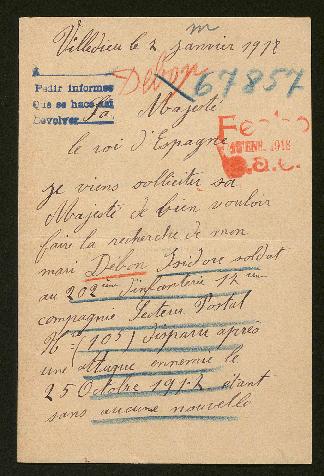 m
Villedieu le 2 janvier 1918
A
Pedir informes
Que se hace así
Devolver
Debon
67857
Sa Majesté
le roi d'Espagne
Fecho
ENE. 1918
je viens solliciter sa
Majesté de bien vouloir
faire la recherche de mon
mari Debon Isidore soldat
au 202ème d'infanterie 12ème
compagnie Secteur Postal
No (105) disparu après
une attaque ennemie le
25 Octobre 1917 étant
sans aucune nouvelle